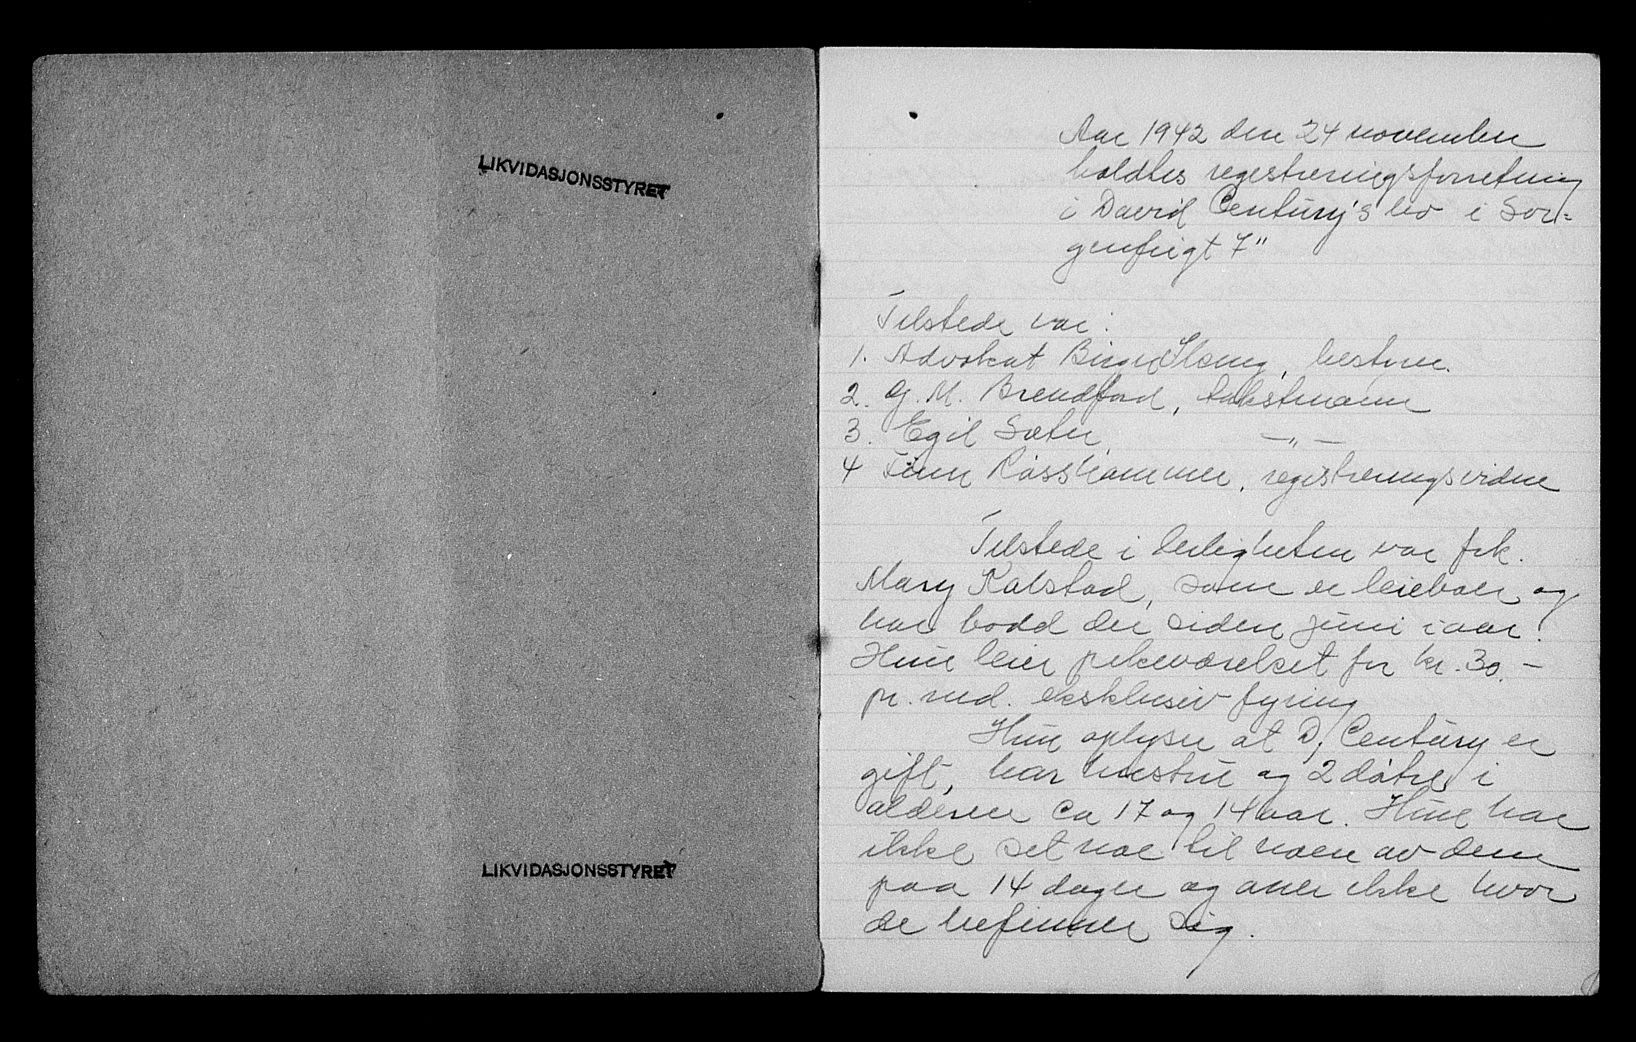 LIKVIDASJONSSTYRET
LIKVIDASJONSSTYRET
Aar 1942 den 24 november
holdtes registreringsforretning
i David Century's bo i Sor=
genfrigt 7"
Tilstede var:
1. Advokat Birger bestyrer.
2. G. M. Brendford, takstmann
3. Egil Sæter, —„—
4 Finn Rosshammer, registreringsvidne
Tilstede i leiligheten var frk.
Mary Kalstad, som er leieboer og
har bodd der siden juni iaar.
Hun leier pikeværelset for kr. 30.-
pr. md. eksklusiv fyring
Hun oplyser at D. Century er
gift, har hustru og 2 døtre i
alderen ca 17 og 14 aar. Hun har
ikke set noe til noen av dem
paa 14 dager og aner ikke hvor
de befinner sig.